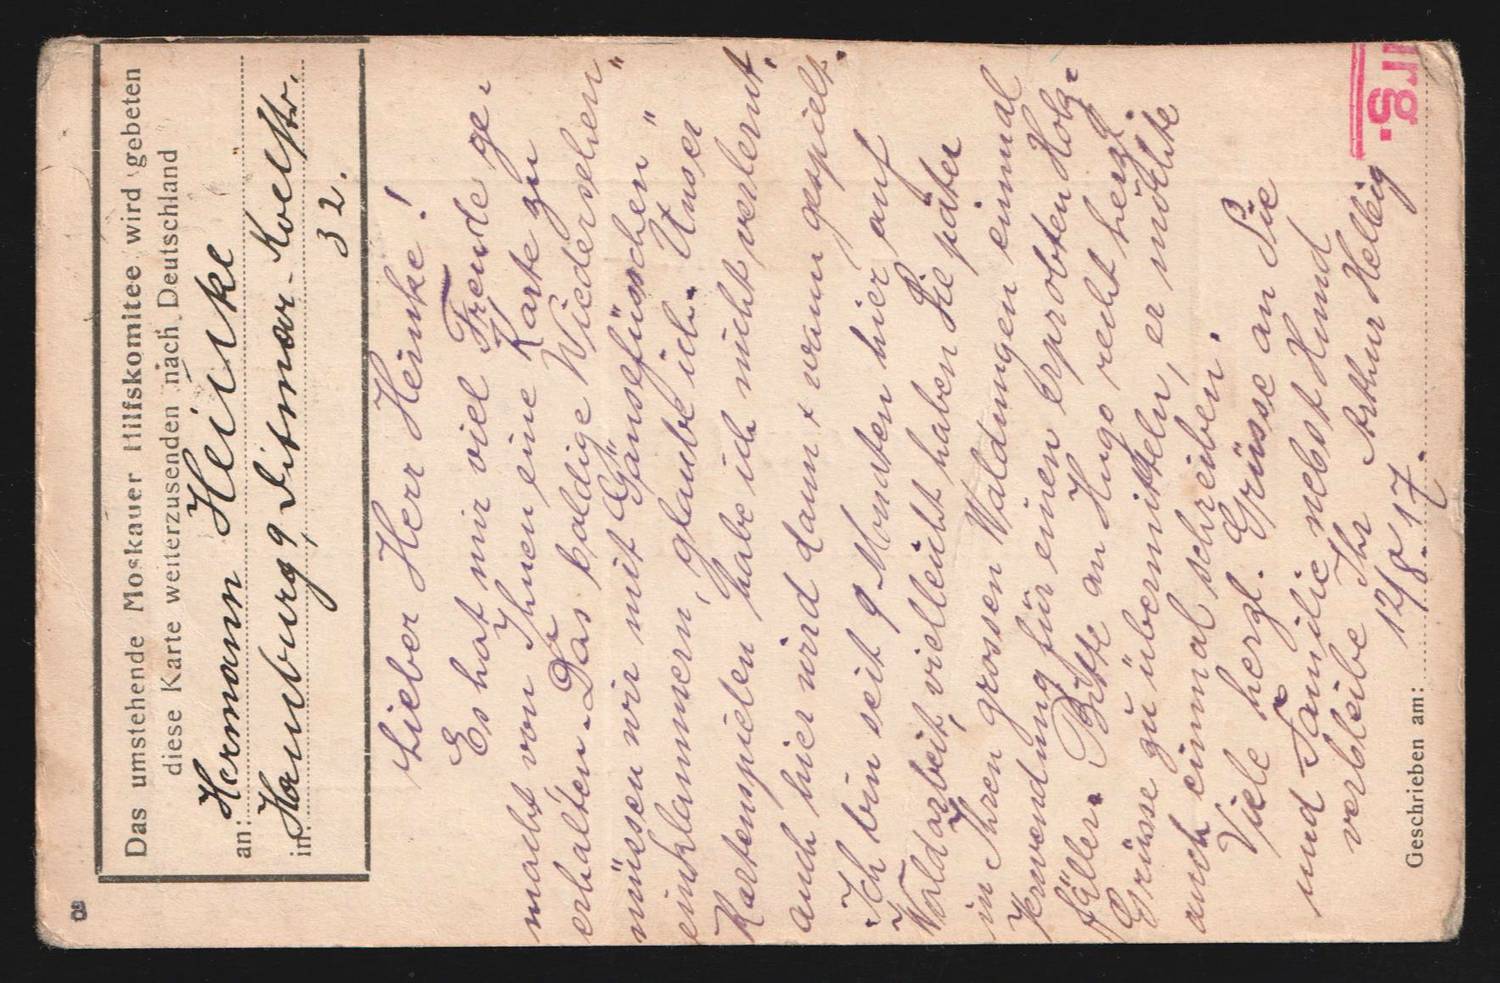 Das umstehende Moskauer Hilfskomitee wird gebeten
diese Karte weiterzusenden nach Deutschland
an: Hermann Heinke
in: Hamburg 9 Ditmar-Koelstr.
32.
Lieber Herr Heinke!
Es hat mir viel Freude ge-
macht von Ihnen eine Karte zu
erhalten. Das baldige "Wiedersehen"
müssen wir mit "Gänsefüsschen"
einklammern, glaube ich. Unser
Kartenspielen habe ich nicht verlernt.
auch hier wird dann + wann gespielt.
Ich bin seit 9 Monaten hier auf
Waldarbeit, vielleicht haben Sie später
in Ihren grossen Waldungen einmal
Verwendung für einen erprobten Holz-
fäller. Bitte an Hugo recht herzl.
Grüsse zu übermitteln, er möchte
auch einmal schreiben.
Viele herzl. Grüsse an Sie
und Familie nebst Hund
verbleibe Ihr Arthur Helbig
12/8.17.
Geschrieben am:
rg.